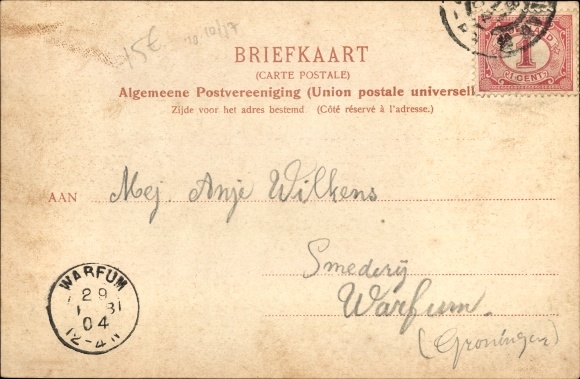 15€
BRIEFKAART
(CARTE POSTALE)
Algemeene Postvereeniging (Union postale universell
Zijde voor het adres bestemd. (Côté réservé à l'adresse.)
1
(1 CENT)
AAN Mej. Anje Wilkens
Smederij
Warfum.
(Groningen)
WARFUM
29
04